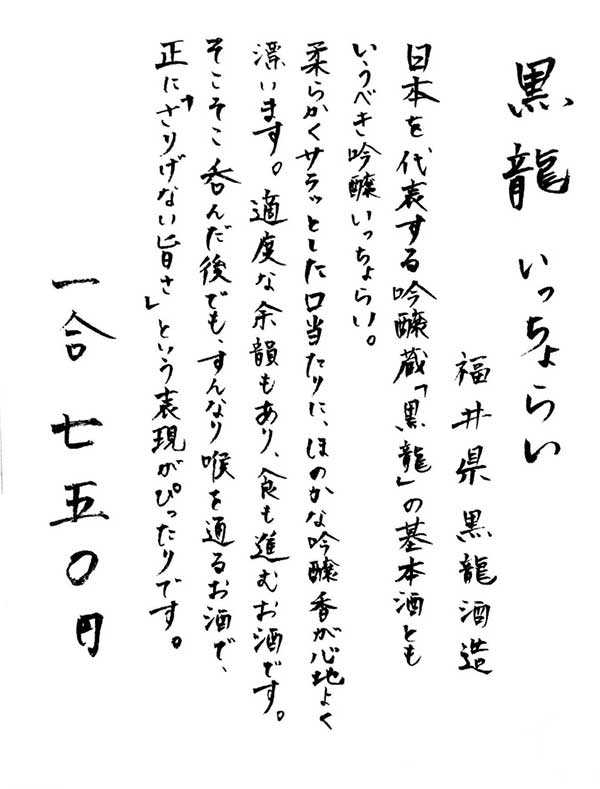 黒龍 いっちょらい
福井県 黒龍酒造
日本を代表する吟醸蔵「黒龍」の基本酒とも
いうべき吟醸いっちょらい。
柔らかくサラッとした口当たりに、ほのかな吟醸香が心地よく
漂います。適度な余韻もあり、食も進むお酒です。
そこそこ呑んだ後でも、すんなり喉を通るお酒で、
正に「さりげない旨さ」という表現がぴったりです。
一合 七五〇円